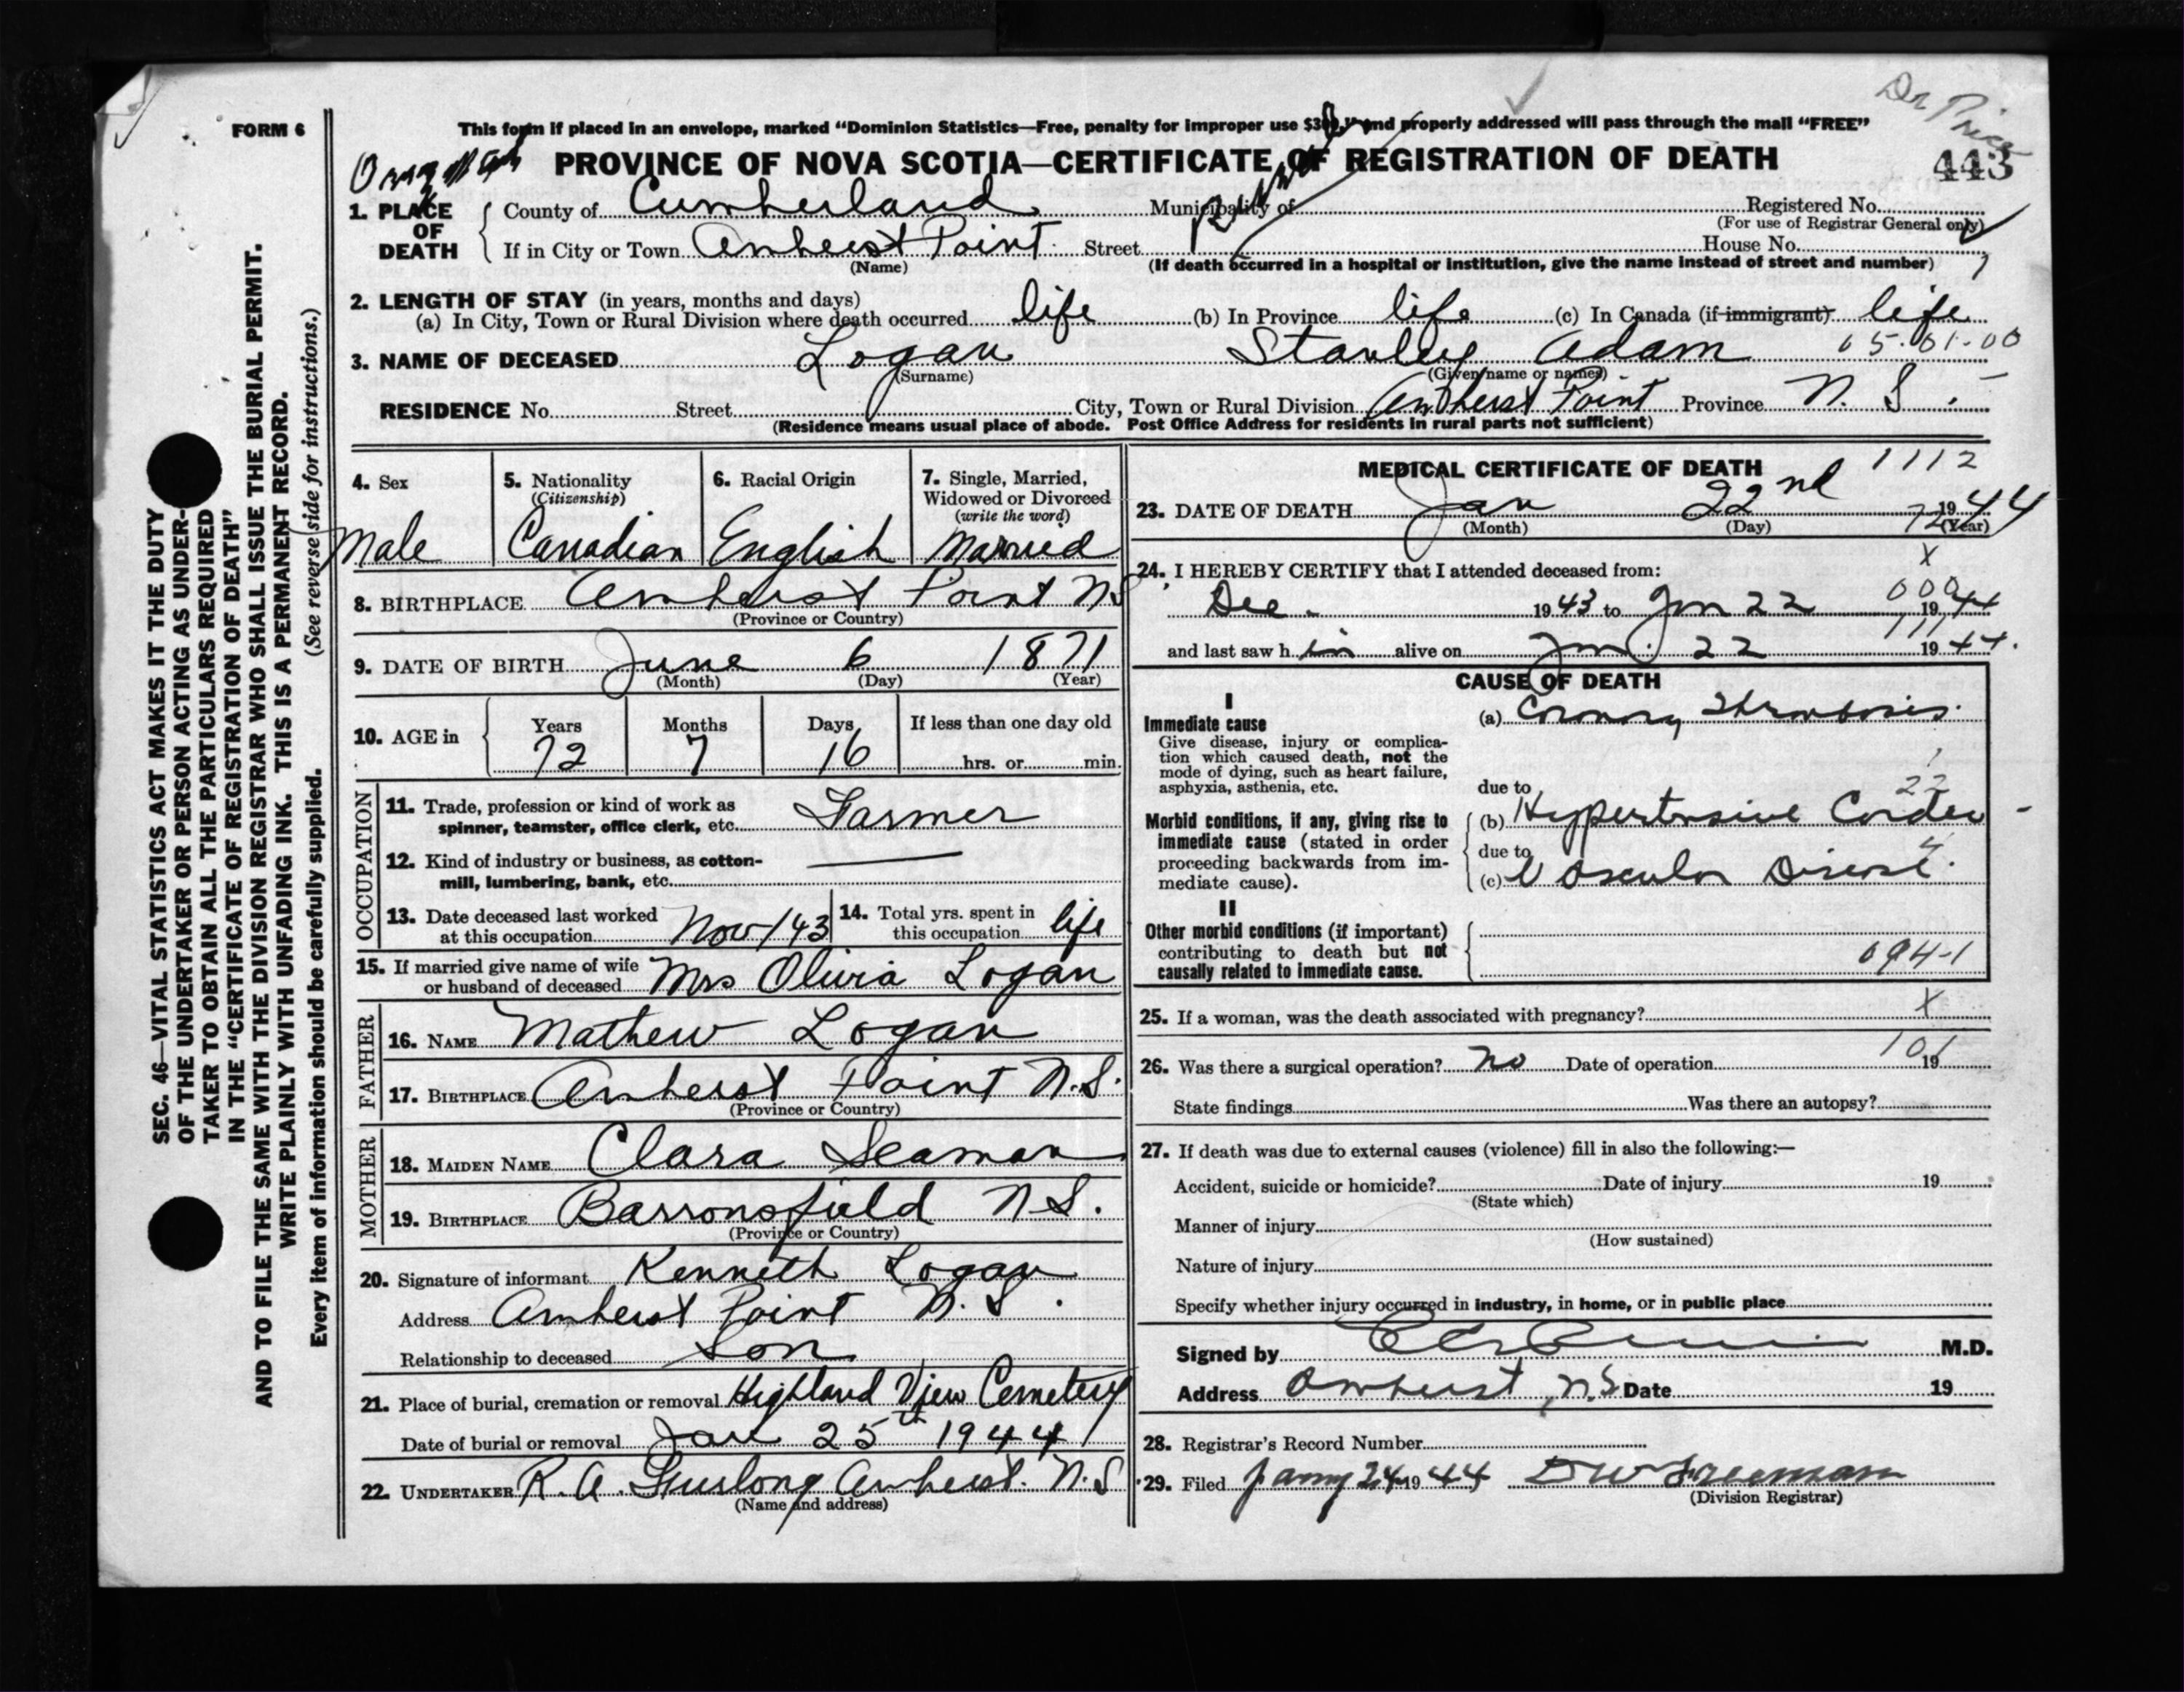 Dr Price
FORM 6
This form if placed in an envelope, marked "Dominion Statistics—Free, penalty for improper use $300," and properly addressed will pass through the mail "FREE"
PROVINCE OF NOVA SCOTIA—CERTIFICATE OF REGISTRATION OF DEATH
443
1. PLACE OF DEATH
County of Cumberland Municipality of Registered No.
(For use of Registrar General only)
If in City or Town Amherst Point Street House No.
(Name)
(If death occurred in a hospital or institution, give the name instead of street and number)
2. LENGTH OF STAY (in years, months and days)
(a) In City, Town or Rural Division where death occurred life (b) In Province life (c) In Canada (if immigrant) life
3. NAME OF DECEASED Logan Stanley Adam 05-01-00
(Surname) (Given name or names)
RESIDENCE No. Street City, Town or Rural Division Amherst Point Province N. S.
(Residence means usual place of abode. Post Office Address for residents in rural parts not sufficient)
4. Sex
Male
5. Nationality
(Citizenship)
Canadian
6. Racial Origin
English
7. Single, Married,
Widowed or Divorced
(write the word)
Married
8. BIRTHPLACE Amherst Point NS
(Province or Country)
9. DATE OF BIRTH June 6 1871
(Month) (Day) (Year)
10. AGE in
Years Months Days If less than one day old
72 7 16 hrs. or min.
OCCUPATION
11. Trade, profession or kind of work as
spinner, teamster, office clerk, etc. Farmer
12. Kind of industry or business, as cotton-
mill, lumbering, bank, etc.
13. Date deceased last worked
at this occupation Nov/43
14. Total yrs. spent in
this occupation life
15. If married give name of wife
or husband of deceased Mrs Olivia Logan
FATHER
16. NAME Mathew Logan
17. BIRTHPLACE Amherst Point N.S.
(Province or Country)
MOTHER
18. MAIDEN NAME Clara Seaman
19. BIRTHPLACE Barronsfield N S.
(Province or Country)
20. Signature of informant Kenneth Logan
Address Amherst Point N. S.
Relationship to deceased Son
21. Place of burial, cremation or removal Highland View Cemetery
Date of burial or removal Jan 25th 1944
22. UNDERTAKER R. A. Furlong Amherst. N.S
(Name and address)
MEDICAL CERTIFICATE OF DEATH 1112
23. DATE OF DEATH Jan 22nd 1944
(Month) (Day) (Year)
72
X
24. I HEREBY CERTIFY that I attended deceased from:
000
Dec. 1943 to Jan 22 1944
111
and last saw h im alive on Jan. 22 1944.
CAUSE OF DEATH
I
Immediate cause
Give disease, injury or complica-
tion which caused death, not the
mode of dying, such as heart failure,
asphyxia, asthenia, etc.
(a) Coronary Thrombosis.
1
22
due to
Morbid conditions, if any, giving rise to
immediate cause (stated in order
proceeding backwards from im-
mediate cause).
(b) Hypertensive Cardio -
4
due to
(c) Vascular Disease.
II
Other morbid conditions (if important)
contributing to death but not
causally related to immediate cause.
094-1
25. If a woman, was the death associated with pregnancy? X
101
26. Was there a surgical operation? No Date of operation 19
State findings Was there an autopsy?
27. If death was due to external causes (violence) fill in also the following:—
Accident, suicide or homicide? Date of injury 19
(State which)
Manner of injury
(How sustained)
Nature of injury
Specify whether injury occurred in industry, in home, or in public place
Signed by M.D.
Address Amherst, N.S Date 19
28. Registrar's Record Number
29. Filed 24 1944 D W Freeman
(Division Registrar)
SEC. 46—VITAL STATISTICS ACT MAKES IT THE DUTY
OF THE UNDERTAKER OR PERSON ACTING AS UNDER-
TAKER TO OBTAIN ALL THE PARTICULARS REQUIRED
IN THE "CERTIFICATE OF REGISTRATION OF DEATH"
AND TO FILE THE SAME WITH THE DIVISION REGISTRAR WHO SHALL ISSUE THE BURIAL PERMIT.
WRITE PLAINLY WITH UNFADING INK. THIS IS A PERMANENT RECORD.
(See reverse side for instructions.)
Every item of information should be carefully supplied.